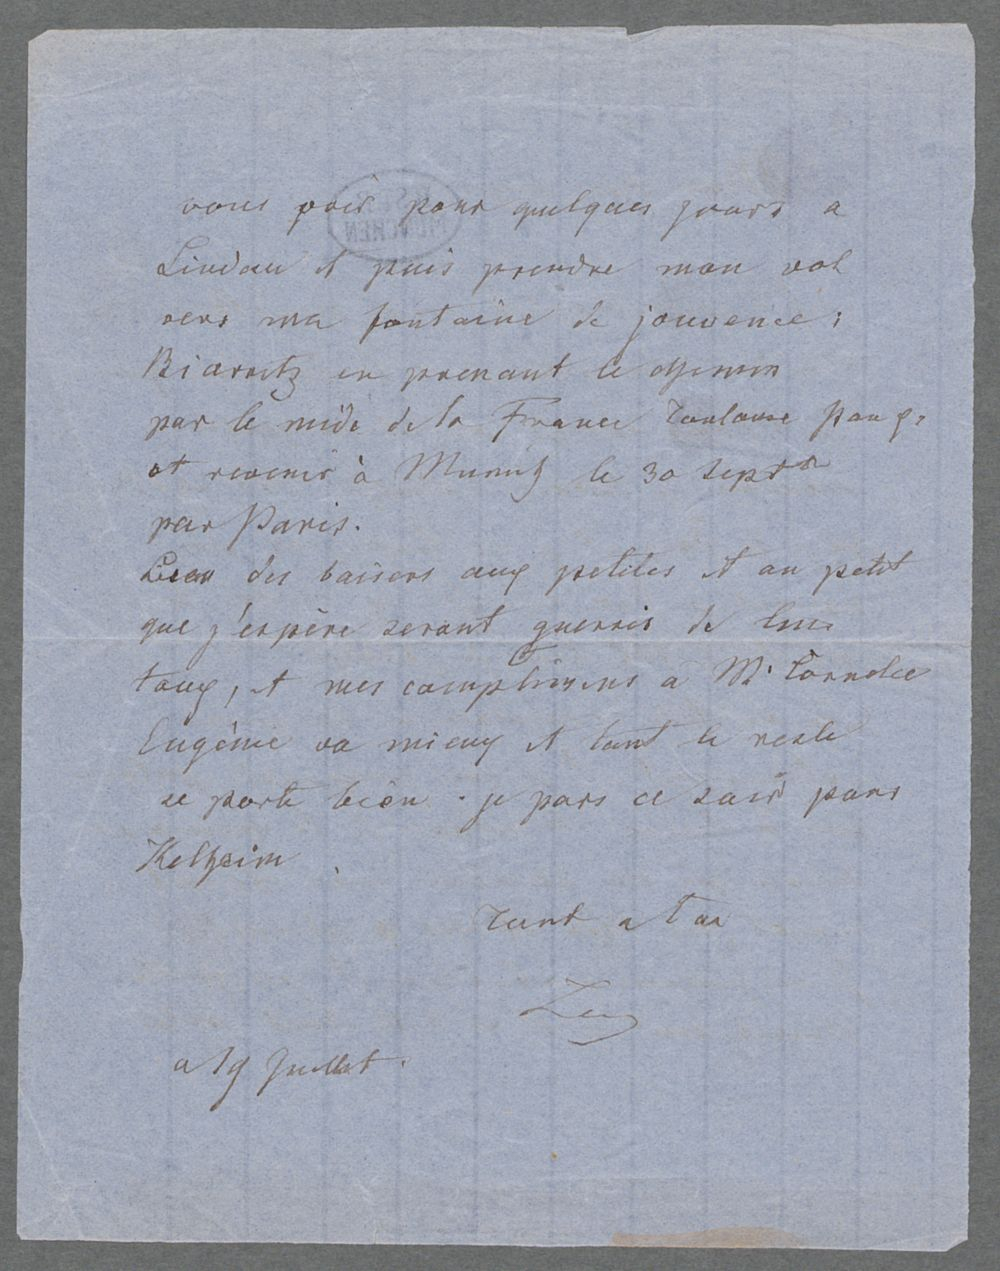 vous voir pour quelques jours a
Lindau et puis prendre mon vol
vers ma fontaine de jouvence;
Biarritz en prenant le chemin
par le midi de la France Toulouse Pau p.
et revenir à Munich le 30 sept
par Paris.
des baisers aux petites et au petit
que j'espère seront guerris de leur
toux, et mes complimens a
Eugénie va mieux et tout le reste
se porte bien. je pars ce soir pour
Kelheim.
Tout a toi
a 19 Juillet.